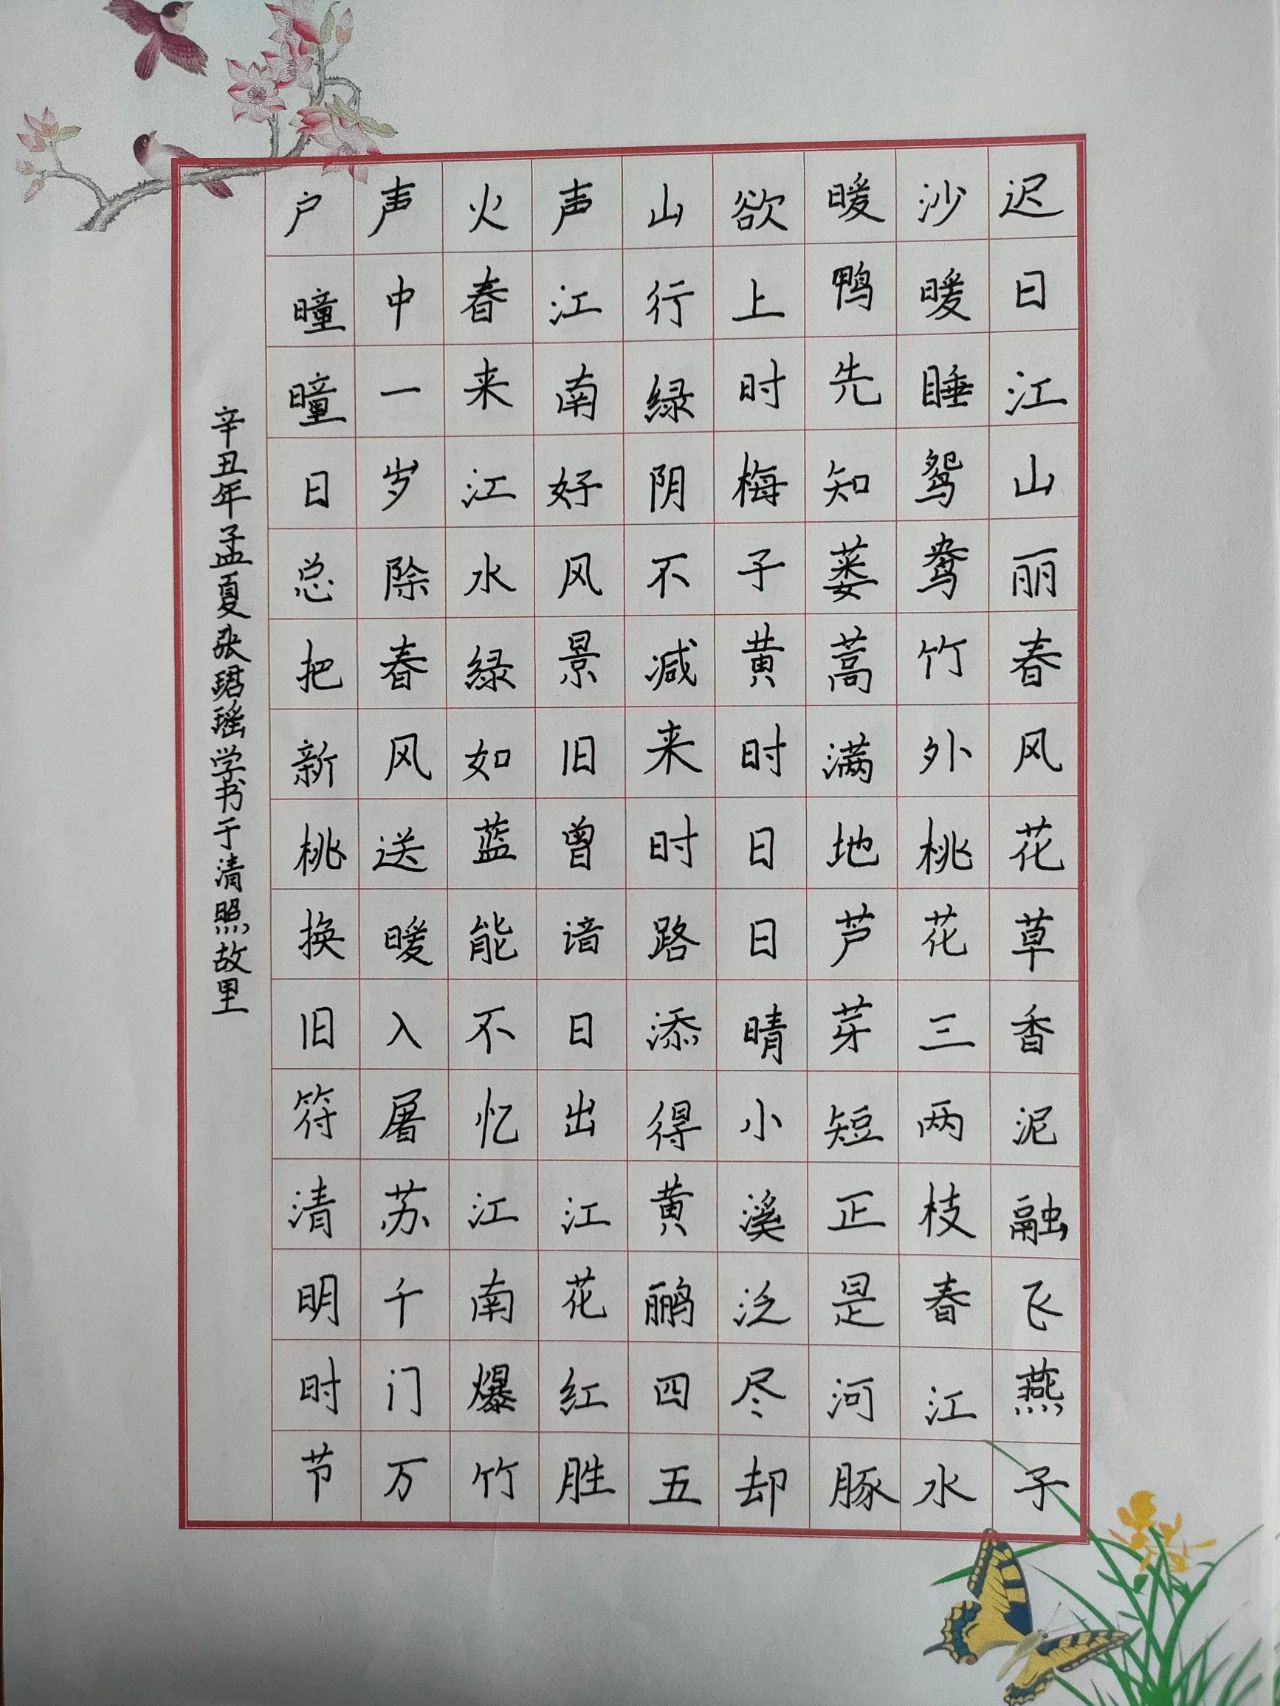 迟日江山丽春风花草香泥融飞燕子
沙暖睡鸳鸯竹外桃花三两枝春江水
暖鸭先知蒌蒿满地芦芽短正是河豚
欲上时梅子黄时日日晴小溪泛尽却
山行绿阴不减来时路添得黄鹂四五
声江南好风景旧曾谙日出江花红胜
火春来江水绿如蓝能不忆江南爆竹
声中一岁除春风送暖入屠苏千门万
户曈曈日总把新桃换旧符清明时节
辛丑年孟夏张珺瑶学书于清照故里